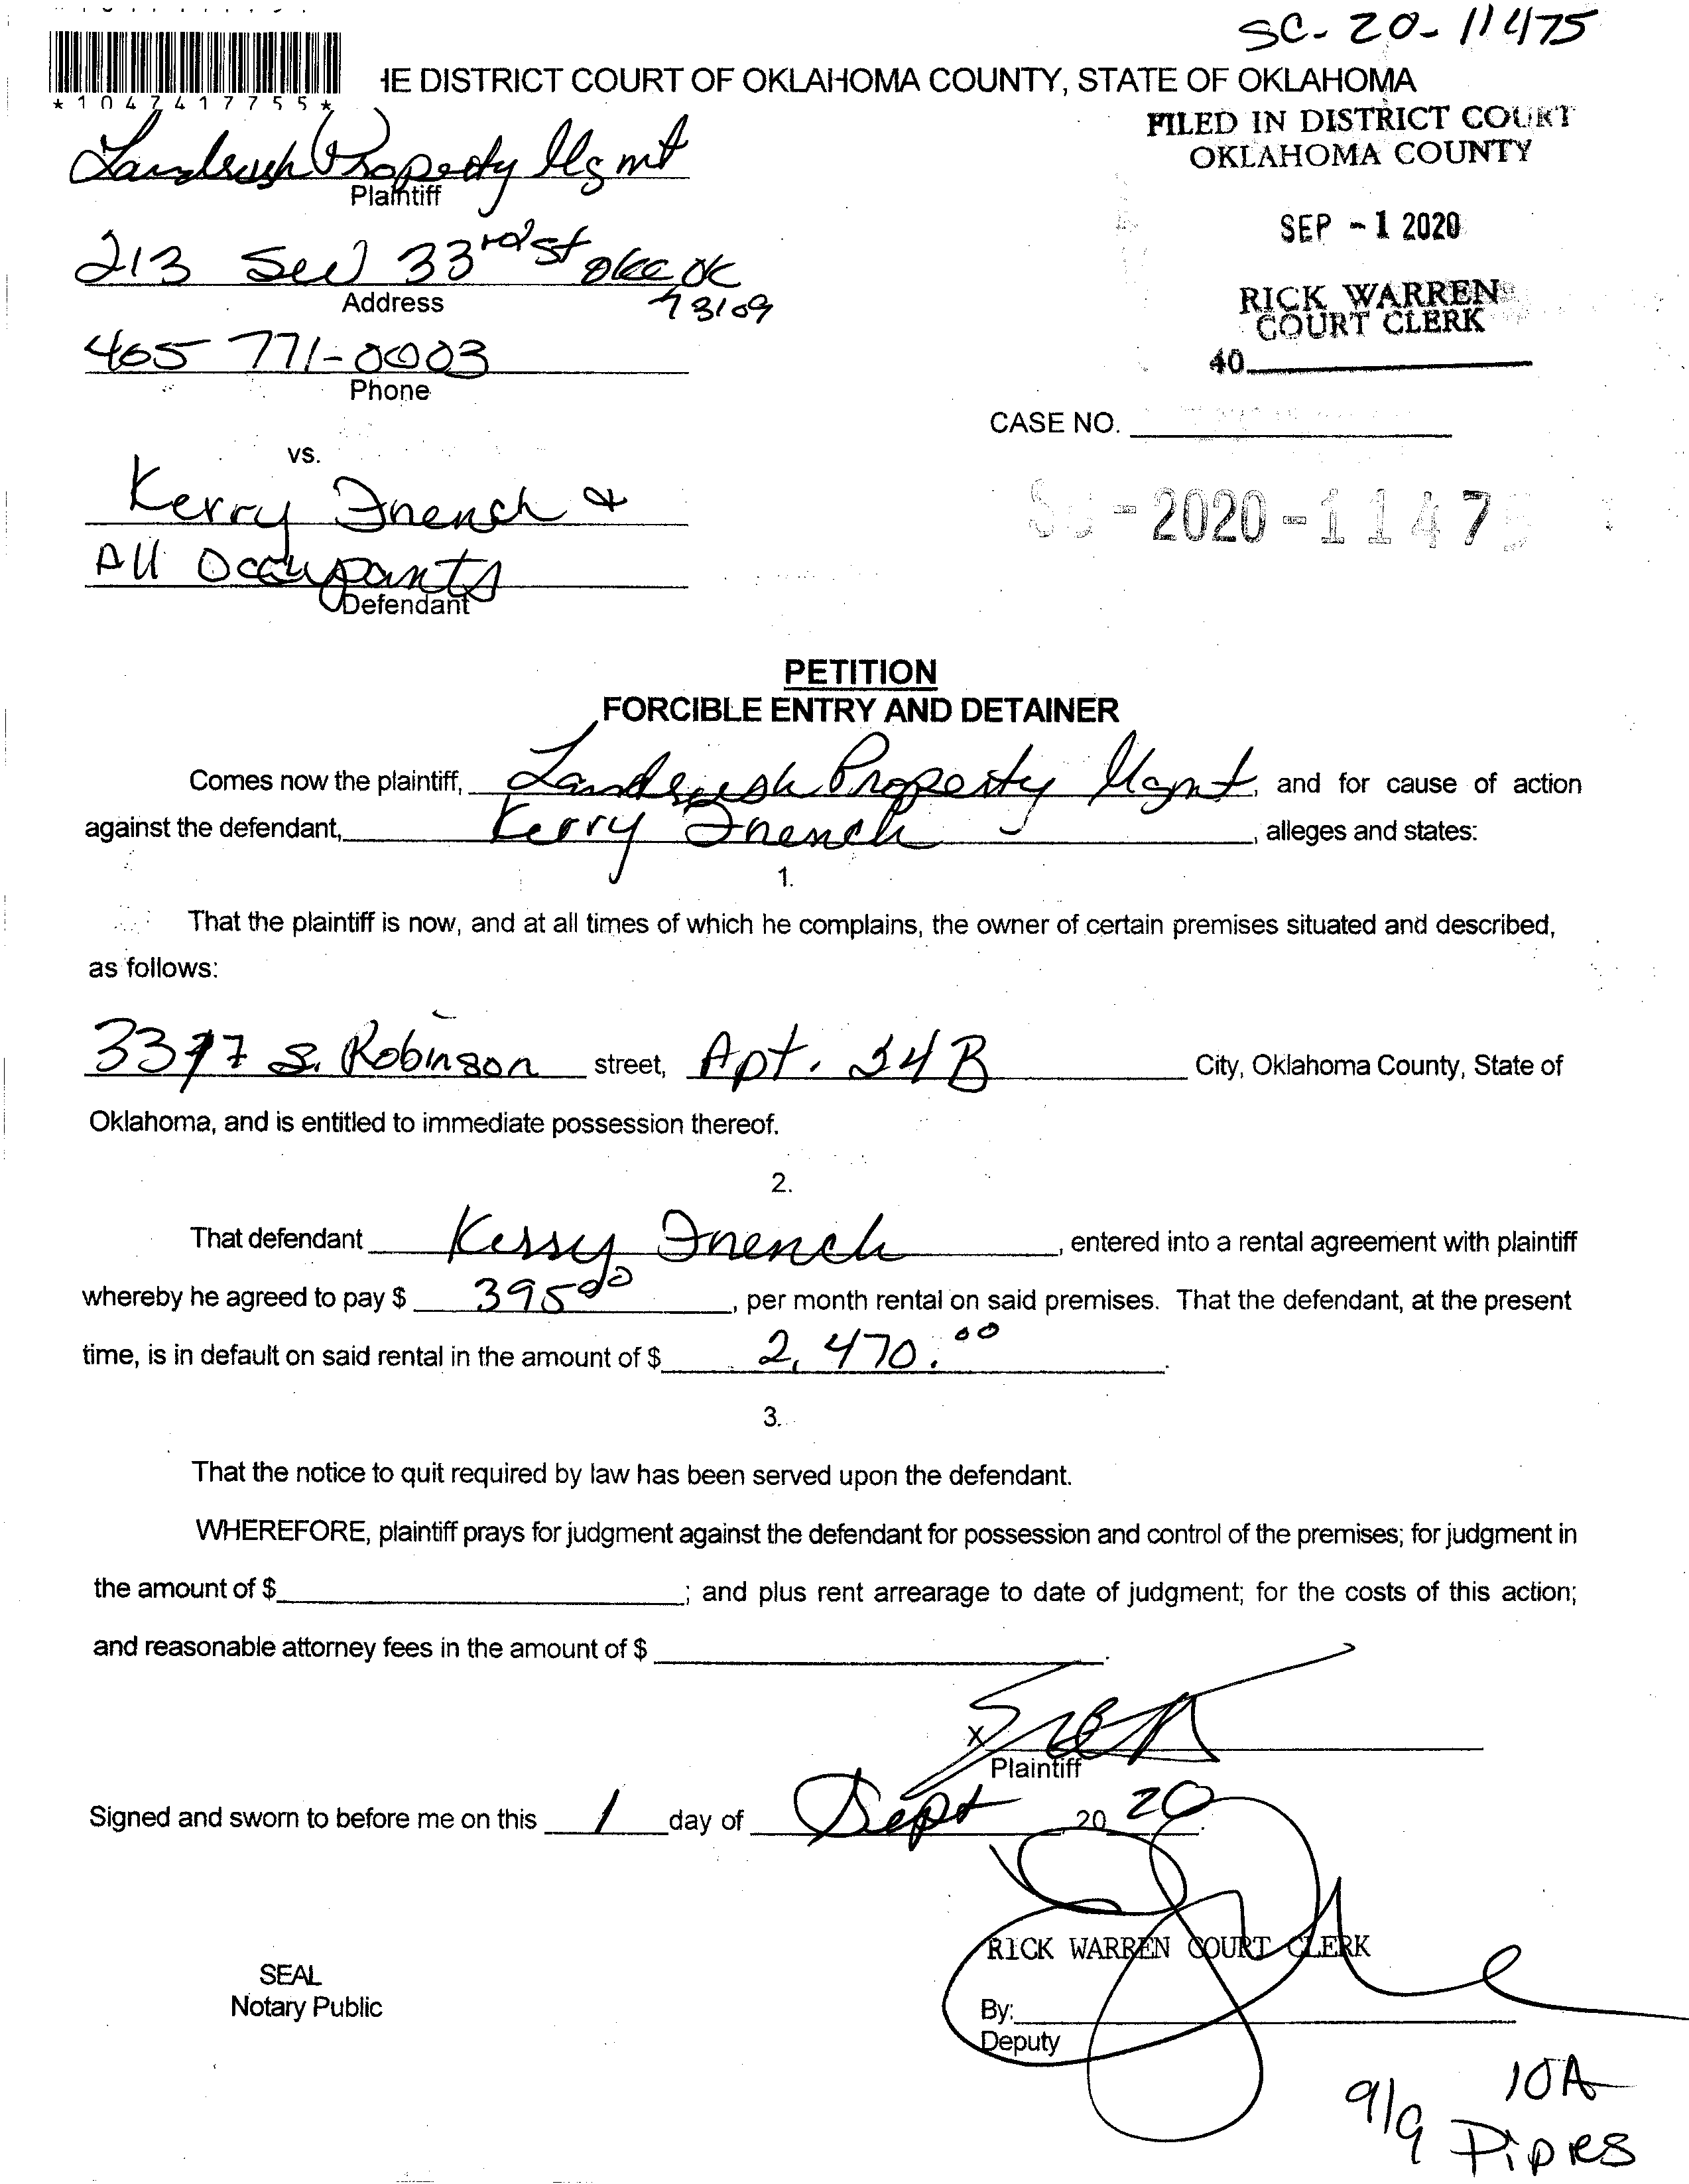 SC-20-11475
*1047417755*
IE DISTRICT COURT OF OKLAHOMA COUNTY, STATE OF OKLAHOMA
FILED IN DISTRICT COURT
OKLAHOMA COUNTY
SEP -1 2020
RICK WARREN
COURT CLERK
40
Landrush Property Mgmt
Plaintiff
213 SW 33rd st OKC OK
73109
Address
405 771-0003
Phone
CASE NO.
vs.
SC-2020-11475
Kerry French &
All Occupants
Defendant
PETITION
FORCIBLE ENTRY AND DETAINER
Comes now the plaintiff, Landrush Property Mgmt, and for cause of action
against the defendant, Kerry French, alleges and states:
1.
That the plaintiff is now, and at all times of which he complains, the owner of certain premises situated and described,
as follows:
S. Robinson street, Apt. 34B City, Oklahoma County, State of
Oklahoma, and is entitled to immediate possession thereof.
2.
That defendant Kerry French, entered into a rental agreement with plaintiff
whereby he agreed to pay $ 395 00, per month rental on said premises. That the defendant, at the present
time, is in default on said rental in the amount of $ 2,470.00.
3.
That the notice to quit required by law has been served upon the defendant.
WHEREFORE, plaintiff prays for judgment against the defendant for possession and control of the premises; for judgment in
the amount of $ ; and plus rent arrearage to date of judgment; for the costs of this action;
and reasonable attorney fees in the amount of $ .
X
Plaintiff
Signed and sworn to before me on this 1 day of Sept, 20 20.
RICK WARREN COURT CLERK
SEAL
Notary Public
By:
Deputy
9/9 10A
Pipes